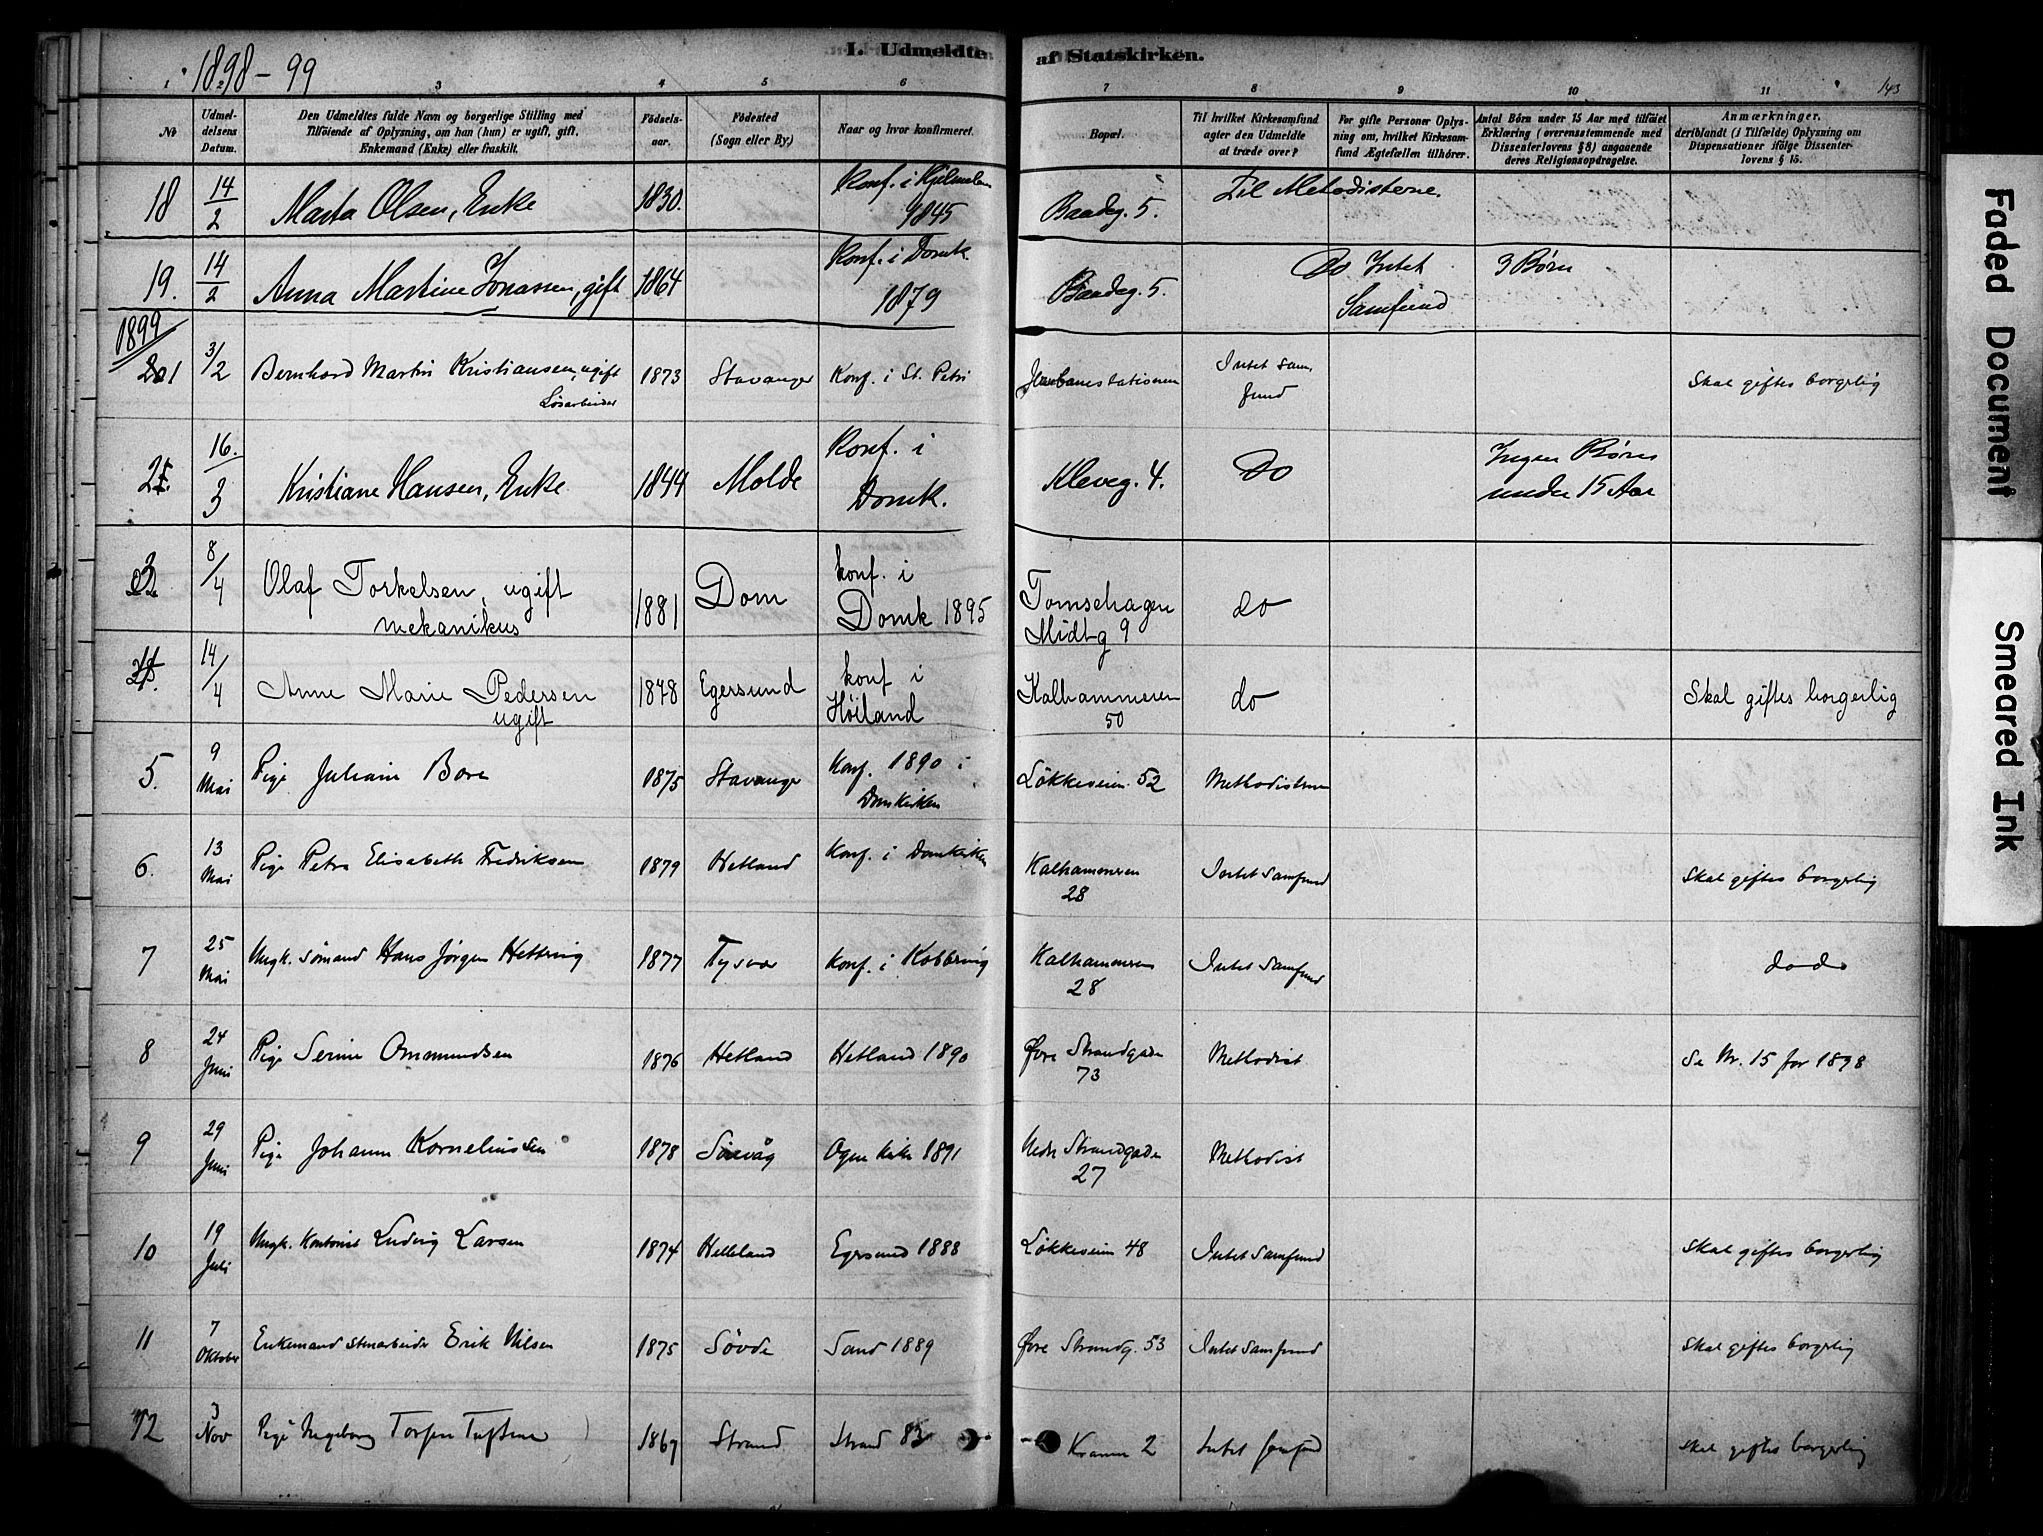 1898-99
I. Udmeldte af Statskirken.
143
1 2 3 4 5 6 7 8 9 10 11
No
Udmeldelsens Datum.
Den Udmeldtes fulde Navn og borgerlige Stilling med Tilföiende af Oplysning, om han (hun) er ugift, gift. Enkemand (Enke) eller fraskilt.
Födselsaar.
Födested (Sogn eller By)
Naar og hvor konfirmeret.
Bopæl.
Til hvilket Kirkesamfund agter den Udmeldte at træde over?
For gifte Personer Oplysning om, hvilket Kirkesamfund Ægtefællen tilhörer.
Antal Börn under 15 Aar med tilföiet Erklæring (overensstemmende med Dissenterlovens § 8) angaaende deres Religionsopdragelse.
Anmærkninger. deriblandt (i Tilfælde) Oplysning om Dispensationer ifölge Dissenterlovens § 15.
18 14/2 Marta Olsen, Enke 1830. Konf. i 1845 Baadeg. 5. Til Metodisterne.
19. 14/2 Anna Martine Jonassen, gift 1864 Konf. i Domk. 1879 Baadeg. 5. Do Intet Samfund 3 Børn
1899
1 3/2 Bernhard Martin Kristiansen, ugift Løsarbeider 1873 Stavanger Konf. i St. Petri Jernbanestationen Intet Samfund Skal giftes borgerlig
2. 16./3 Kristiane Hansen, Enke 1844 Molde Konf. i Domk. Kleveg. 4. Do Ingen Børn under 15 Aar
3 8/4 Olaf Torkelsen, ugift mekanikus 1881 Dom konf. i Domk 1895 Tomsehagen Midtg 9 do
4. 14/4 Anne Marie Pedersen ugift 1848 Egersund konf i Høiland Kalhammeren 50 do Skal giftes borgerlig
5. 9 Mai Pige Juliane Bore 1875 Stavanger Konf. 1890 i Domkirken Løkkeveien 52 Methodisterne
6. 13 Mai Pige Petra Elisabeth Fredriksen 1879 Hetland Konf. i Domkirken Kalhammeren 28 Intet Samfund Skal giftes borgerlig
7 25 Mai Ungk. sømand Hans Jørgen Hettervig 1877 Tysvær Konf. i Kobbervig Kalhammeren 28 Intet Samfund do do
8 24 Juni Pige Serine Ommundsen 1876 Hetland Hetland 1890 Øvre Strandgade 73 Methodist Se Nr. 15 for 1898
9 29 Juni Pige Johanne Korneliussen 1878 Sirevåg Ogne kirke 1891 Nedre Strandgade 27 Methodist
10 19 Juli Ungk. Kontorist Ludvig Larsen 1874 Helleland Egersund 1888 Løkkeveien 48 Intet Samfund Skal giftes borgerlig
11 7 Oktober Enkemand Stenarbeider Erik Nilsen 1875 Søvde Sand 1889 Øvre Strandg. 53 Intet Samfund Skal giftes borgerlig
12 3 Nov Pige Ingeborg 1867 Strand Strand 83 2 Intet samfund skal giftes borgerlig
Faded Document
Smeared Ink